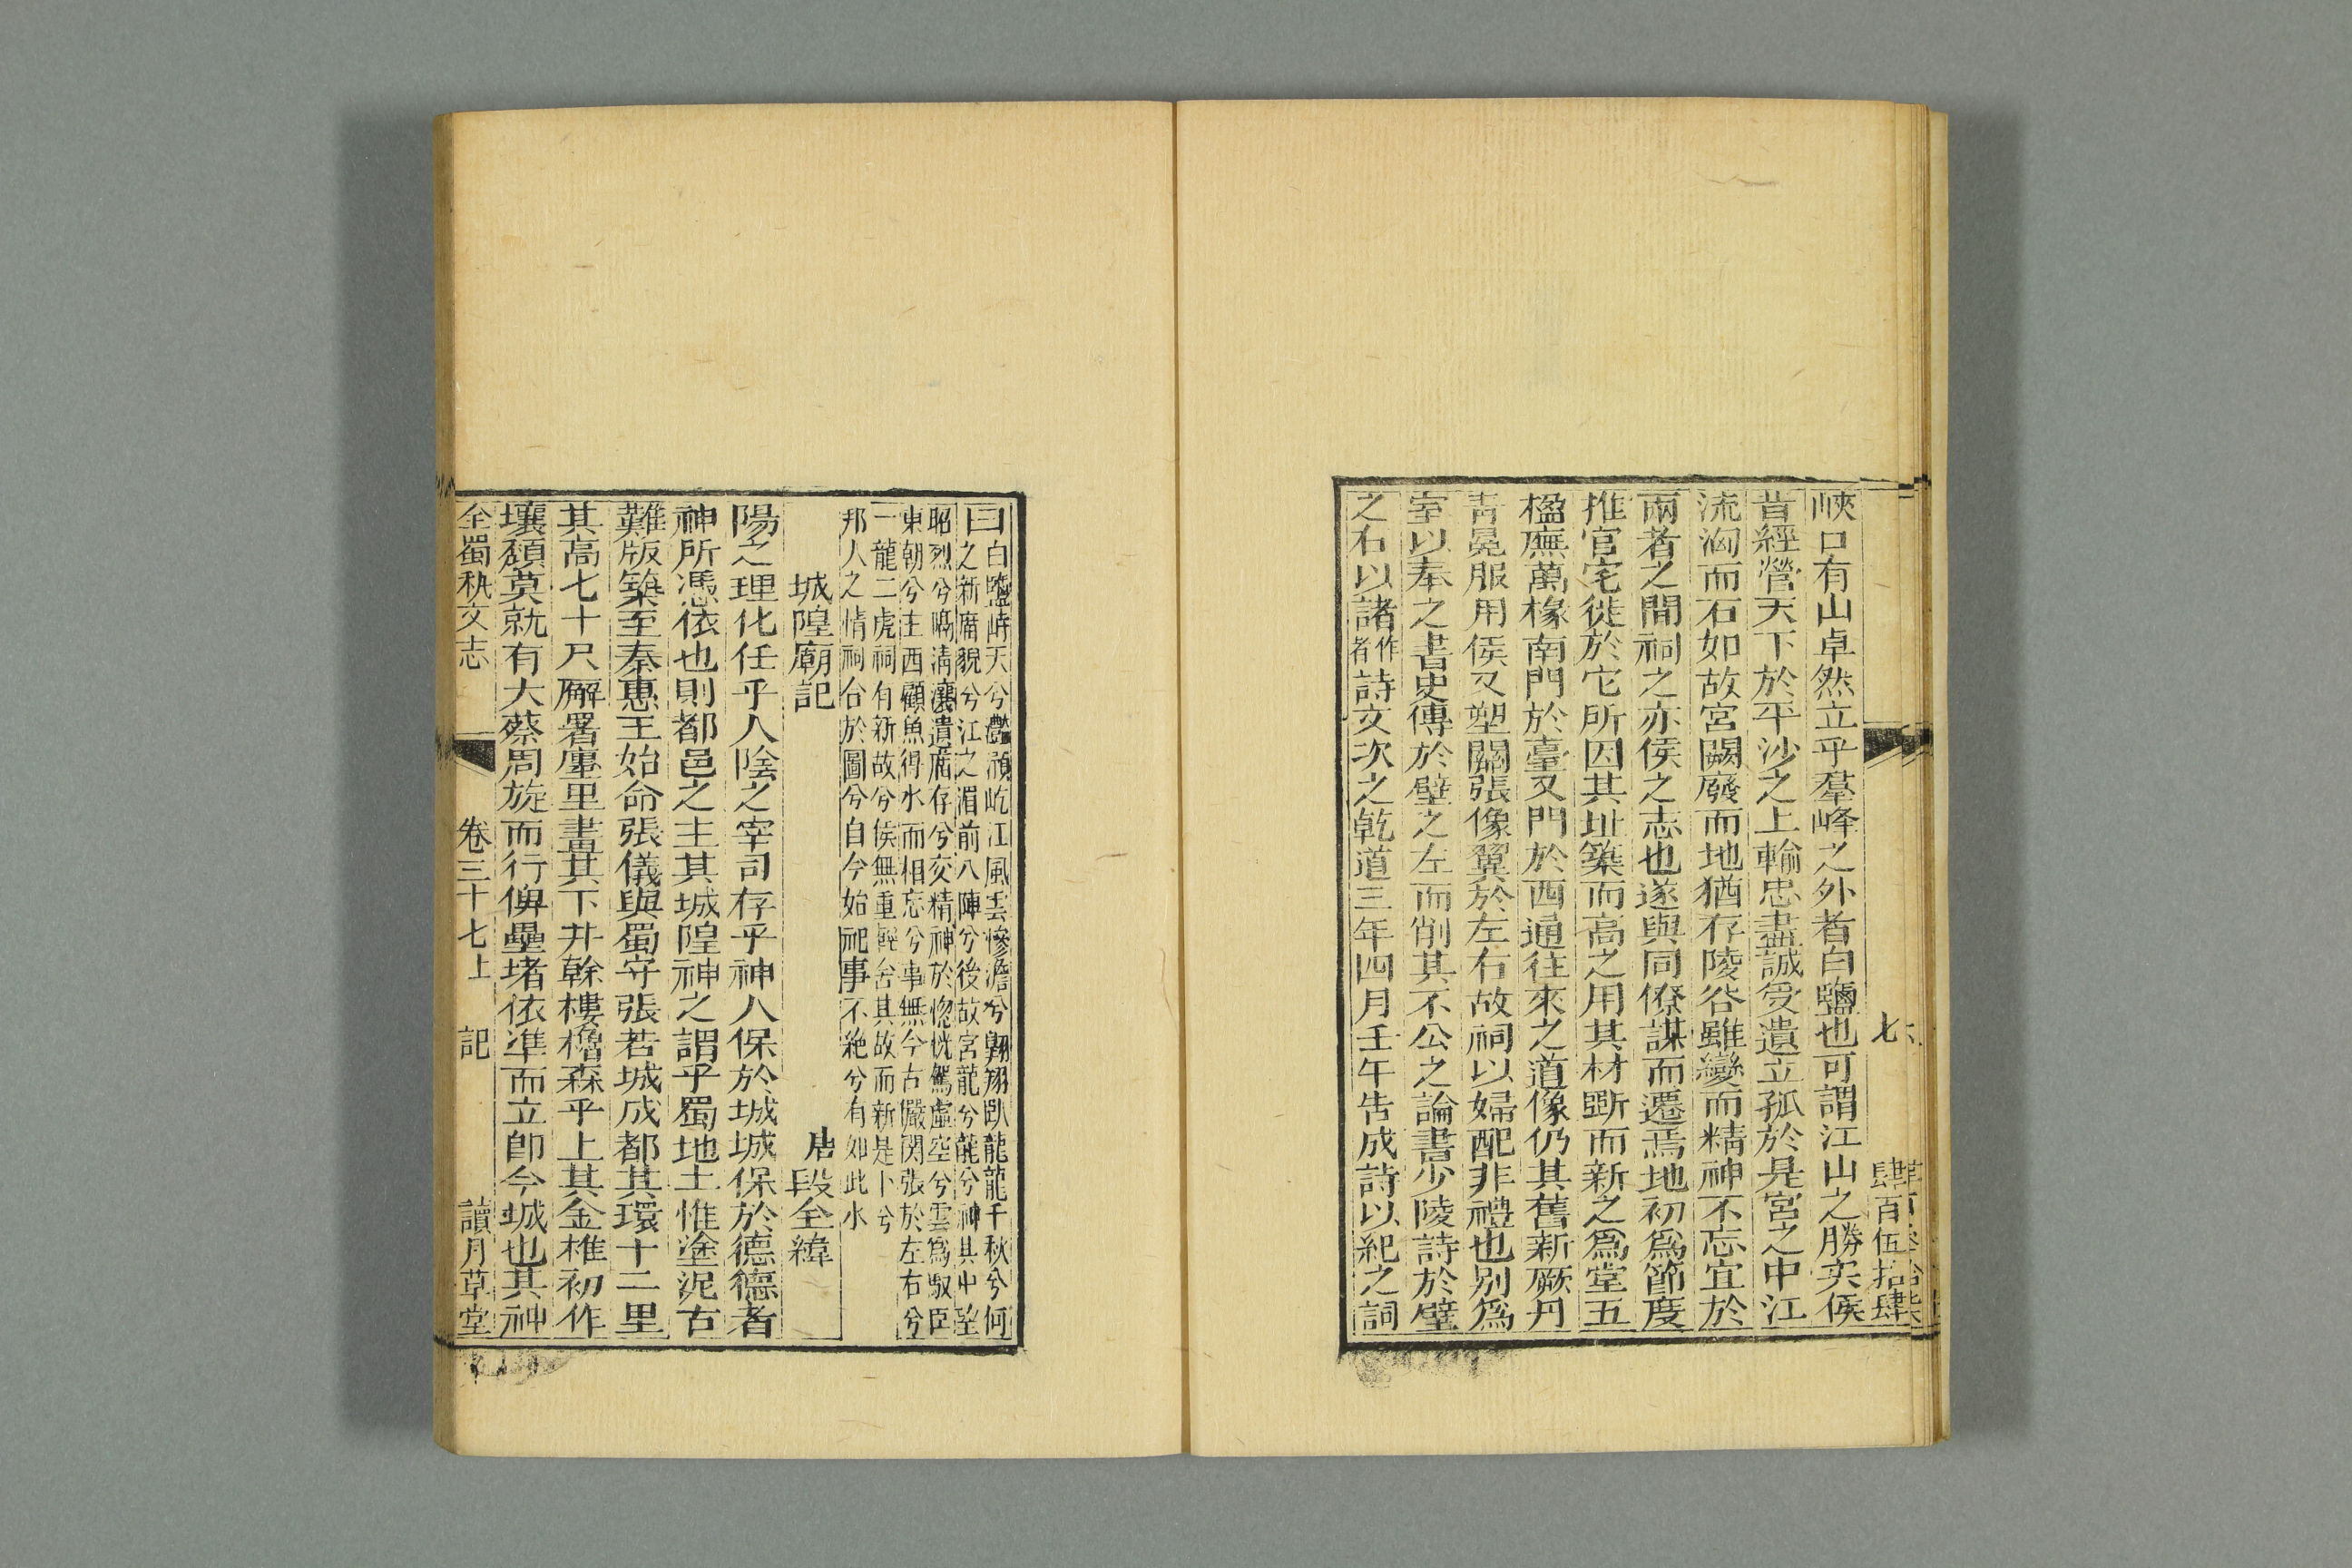 七
肆百伍拾肆
峽口有山卓然立乎羣峰之外者白鹽也可謂江山之勝矣侯
昔經營天下於平沙之上輸忠盡誠受遺立孤於是宮之中江
流洶而石如故宮闕廢而地猶存陵谷雖變而精神不忘宜於
兩者之間祠之亦侯之志也遂與同僚謀而遷焉地初爲節度
推官宅徙於它所因其址築而高之用其材斲而新之爲堂五
楹廡萬椽南門於臺又門於西通往來之道像仍其舊新厥丹
靑冕服用侯又塑關張像翼於左右故祠以婦配非禮也别爲
室以奉之書史傳於壁之左而削其不公之論書少陵詩於壁
之右以諸作者詩文次之乾道三年四月壬午吿成詩以紀之詞
曰白鹽峙天兮灩澦屹江風雲慘澹兮翺翔臥龍龍千秋兮何
之新廟貌兮江之湄前八陣兮後故宮龍兮龍兮神其中堊
昭烈兮兮㬢淸瀼遺廟存兮交精神於惚恍駕虛空兮雲爲馭臣
東朝兮主西顧魚得水而相忘兮事無今古儼関張於左右兮
一龍二虎祠有新故兮侯無重輕舍其故而新是卜兮
邦人之情祠合於圖兮自今始祀事不絶兮有如此水
城隍廟記　唐段全緯
陽之理化任乎人陰之宰司存乎神人保於城城保於德德者
神所憑依也則都邑之主其城隍神之謂乎蜀地土惟塗泥古
難版築至秦惠王始命張儀與蜀守張若城成都其環十二里
其高七十尺廨署廛里畫其下井榦樓櫓森乎上其金椎初作
壤頽莫就有大蔡周旋而行俾壘堵依準而立卽今城也其神
全蜀秇文志　卷三十七上　記　讀月草堂